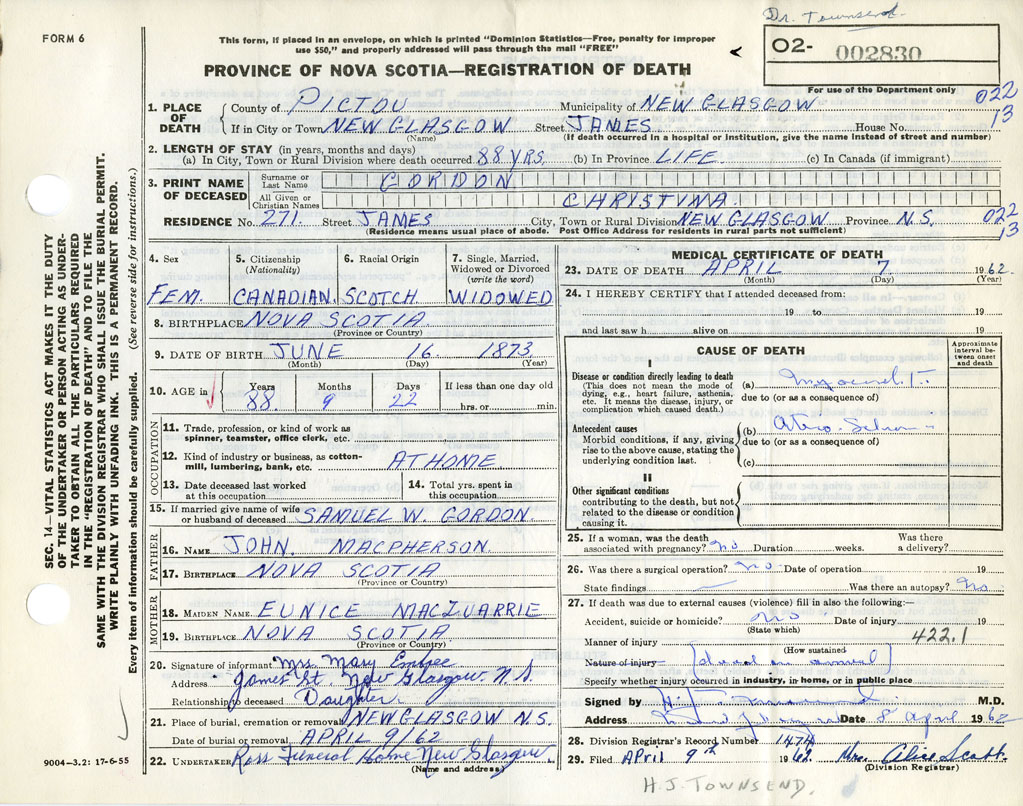 Dr. Townsend.
FORM 6
This form, if placed in an envelope, on which is printed "Dominion Statistics—Free, penalty for improper
use $50," and properly addressed will pass through the mail "FREE"
O2- 002830
PROVINCE OF NOVA SCOTIA—REGISTRATION OF DEATH
For use of the Department only
022
13
1. PLACE OF DEATH County of PICTOU Municipality of NEW GLASGOW
If in City or Town NEW GLASGOW Street JAMES House No.
(Name) (If death occurred in a hospital or institution, give the name instead of street and number)
2. LENGTH OF STAY (in years, months and days)
(a) In City, Town or Rural Division where death occurred 88 YRS. (b) In Province LIFE (c) In Canada (if immigrant)
3. PRINT NAME OF DECEASED Surname or Last Name GORDON
All Given or Christian Names CHRISTINA
RESIDENCE No. 271 Street JAMES City, Town or Rural Division NEW GLASGOW Province N.S. 022
13
(Residence means usual place of abode. Post Office Address for residents in rural parts not sufficient)
SEC. 14—VITAL STATISTICS ACT MAKES IT THE DUTY
OF THE UNDERTAKER OR PERSON ACTING AS UNDER-
TAKER TO OBTAIN ALL THE PARTICULARS REQUIRED
IN THE "REGISTRATION OF DEATH" AND TO FILE THE
SAME WITH THE DIVISION REGISTRAR WHO SHALL ISSUE THE BURIAL PERMIT.
WRITE PLAINLY WITH UNFADING INK. THIS IS A PERMANENT RECORD.
Every item of information should be carefully supplied. (See reverse side for instructions.)
4. Sex 5. Citizenship (Nationality) 6. Racial Origin 7. Single, Married, Widowed or Divorced (write the word)
FEM. CANADIAN SCOTCH WIDOWED
8. BIRTHPLACE NOVA SCOTIA
(Province or Country)
9. DATE OF BIRTH JUNE 16 1873
(Month) (Day) (Year)
10. AGE in Years Months Days If less than one day old
88 9 22 hrs. or min.
OCCUPATION
11. Trade, profession, or kind of work as
spinner, teamster, office clerk, etc.
12. Kind of industry or business, as cotton-
mill, lumbering, bank, etc. AT HOME
13. Date deceased last worked
at this occupation
14. Total yrs. spent in
this occupation
15. If married give name of wife
or husband of deceased SAMUEL W. GORDON
FATHER
16. NAME JOHN. MACPHERSON
17. BIRTHPLACE NOVA SCOTIA
(Province or Country)
MOTHER
18. MAIDEN NAME EUNICE MACQUARRIE
19. BIRTHPLACE NOVA SCOTIA
(Province or Country)
20. Signature of informant Mrs. Mary Embree
Address James St. New Glasgow. N.S.
Relationship to deceased Daughter.
21. Place of burial, cremation or removal NEW GLASGOW N.S.
Date of burial or removal APRIL 9/62
22. UNDERTAKER Ross Funeral Home New Glasgow
(Name and address)
9004—3.2: 17-6-55
MEDICAL CERTIFICATE OF DEATH
23. DATE OF DEATH APRIL 7 1962
(Month) (Day) (Year)
24. I HEREBY CERTIFY that I attended deceased from:
19 to 19
and last saw h alive on 19
CAUSE OF DEATH
Approximate interval between onset and death
I
Disease or condition directly leading to death
(This does not mean the mode of
dying, e.g., heart failure, asthenia,
etc. It means the disease, injury, or
complication which caused death.)
(a)
due to (or as a consequence of)
Antecedent causes
Morbid conditions, if any, giving
rise to the above cause, stating the
underlying condition last.
(b)
due to (or as a consequence of)
(c)
II
Other significant conditions
contributing to the death, but not
related to the disease or condition
causing it.
25. If a woman, was the death
associated with pregnancy? no Duration weeks. Was there
a delivery?
26. Was there a surgical operation? no Date of operation 19
State findings — Was there an autopsy? No
27. If death was due to external causes (violence) fill in also the following:—
Accident, suicide or homicide? no Date of injury 19
(State which)
422.1
Manner of injury
(How sustained
Nature of injury (dead on arrival)
Specify whether injury occurred in industry, in home, or in public place
Signed by M.D.
Address Date 8 April 1962
28. Division Registrar's Record Number 1474
29. Filed April 9th 1962 Mrs. Alice Scott
(Division Registrar)
H.J. TOWNSEND.